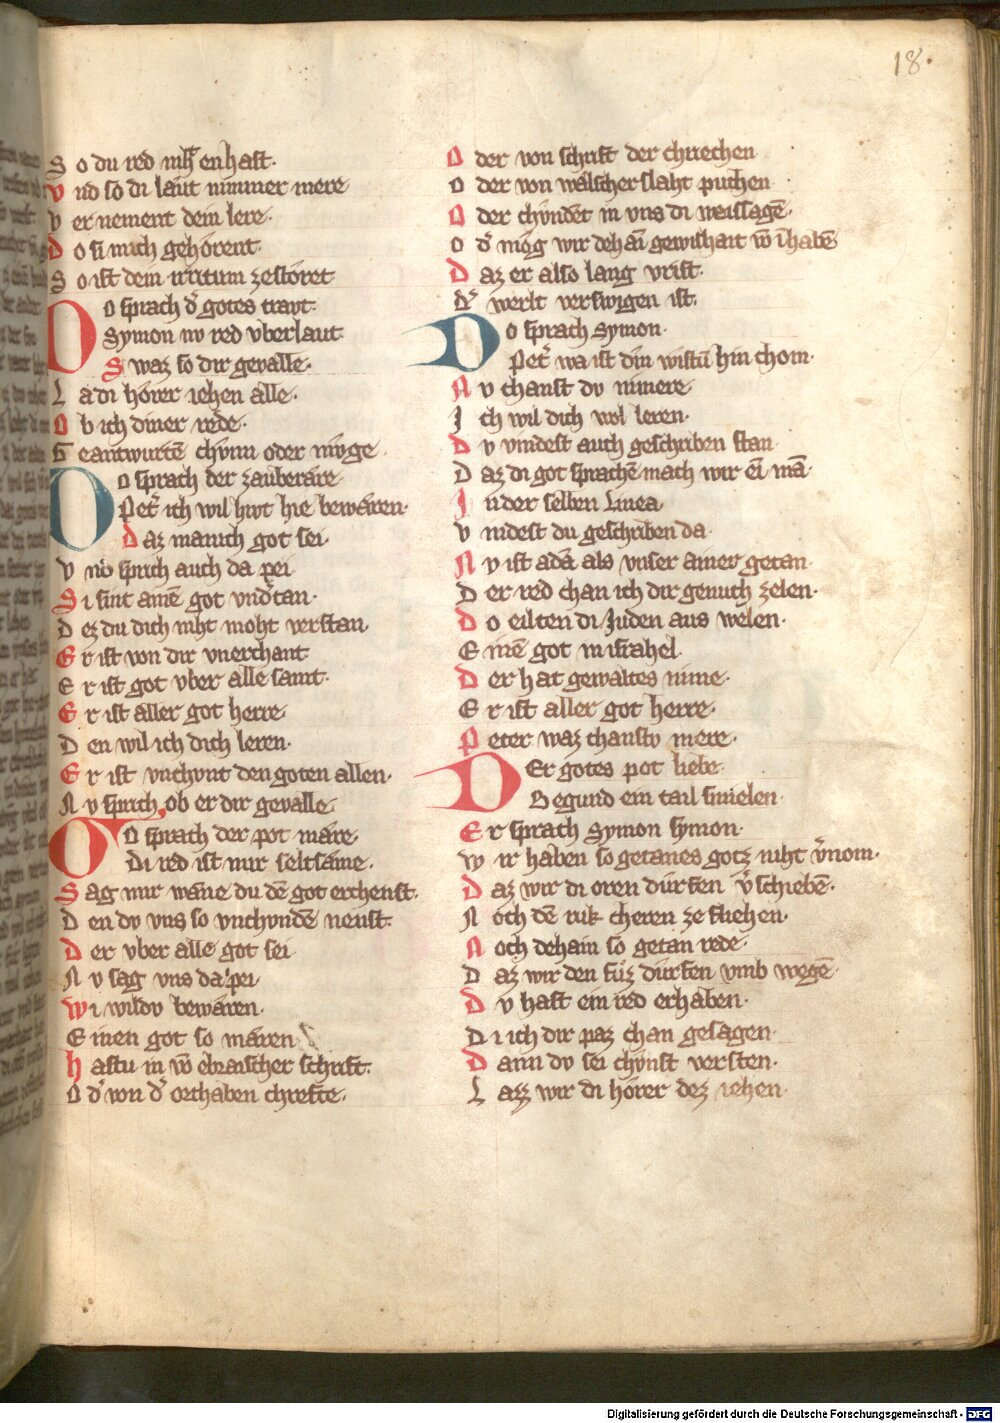 18.
So du red niht enhast.
Vnd so di laut nimmer mere
Vernement dein lere.
Do si mich gehorent.
So ist dein irritum zestoret
Do sprach d̉ gotes travt.
Symon nv red vberlaut
Swaz so dir gevalle.
La di horer iehen alle.
Ob ich diner rede.
Geantwurtē chvnn oder mvge
Do sprach der zauberare
Pet̉ ich wil hivt hie bewaren.
Daz manich got sei
Vnd sprich auch da pei
Si sint ainē got vnd̉tan.
Dez du dich niht moht verstan
Er ist von dir vnerchant
Er ist got vber alle samt.
Er ist aller got herre.
Den wil ich dich leren.
Er ist vnchvnt den goten allen.
Nv sprich ob er dir gevalle.
Do sprach der pot mare.
Di red ist mir seltsame.
Sag mir wane du dē got erchenst.
Den dv vns so vnchvndē nenst.
Der vber alle got sei
Nv sag vns da pei
Wi wildv bewaren.
Einen got so maren
Hastu in vō ebraischer schrift.
Od̉ von d̉ orchaben chrefte.
Oder von schrift der chriechen
Oder von walscher slaht puchen
Oder chvndet in vns di weissagē.
Od̉ mog wir dehaī gewishait vō ī habē
Daz er also lang vrist.
D̉ werlt verswigen ist.
Do sprach symon.
Pet̉ wa ist din wistū hin chom.
Nv chanst dv nimere
Ich wil dich wol leren.
Dv vindest auch geschriben stan
Daz di got sprachē mach wir eī mā.
In der selben linea
Vindest du geschriben da.
Nv ist adā als vnser ainer getan.
Der red chan ich dir genuch zelen.
Do eilten di Juden aus welen.
Einē got in israhel.
Der hat gewaltes nime.
Er ist aller got herre.
Peter waz chanstv mere.
Der gotes pot liebe.
Begund ein tail smielen.
Er sprach symon symon.
Wir haben so getanes gotz niht v̉nom.
Daz wir di oren durfen v̉schiebē.
Noch dē ruk cheren ze fliehen.
Noch dehain so getan rede.
Daz wir den fuz durfen vmb wegē.
Dv hast ein red erhaben.
Di ich dir paz chan gesagen
Dann dv sei chvnst versten.
Lazz wir di horer dez iehen.
Digitalisierung gefördert durch die Deutsche Forschungsgemeinschaft - DFG